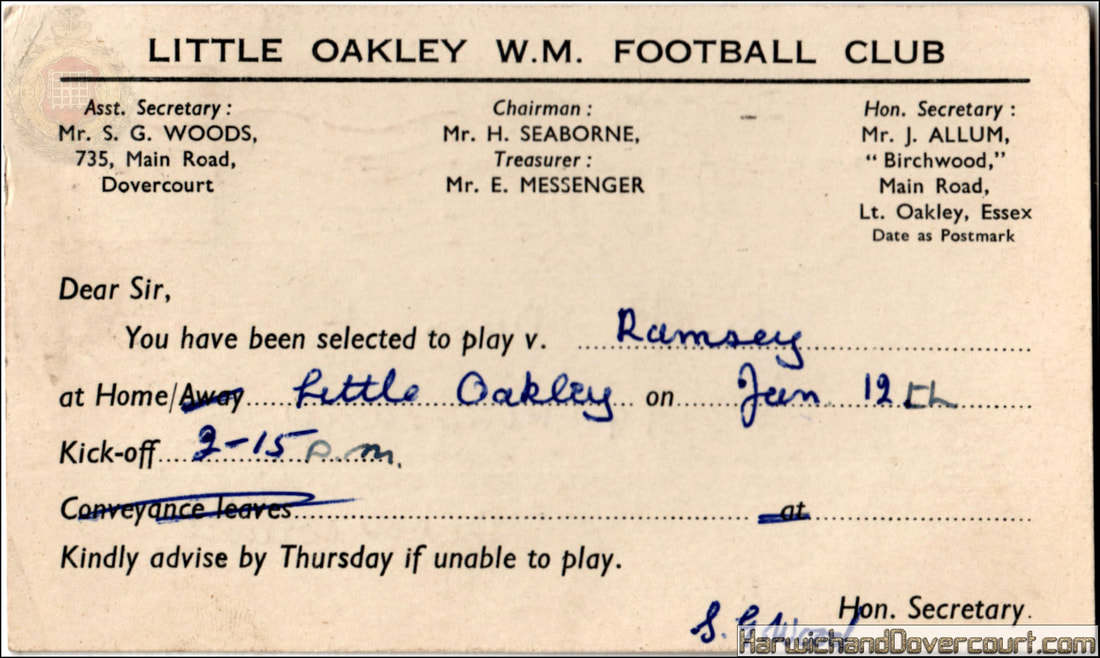 LITTLE OAKLEY W.M. FOOTBALL CLUB
Asst. Secretary :
Mr. S. G. WOODS,
735, Main Road,
Dovercourt
Chairman :
Mr. H. SEABORNE,
Treasurer :
Mr. E. MESSENGER
Hon. Secretary :
Mr. J. ALLUM,
"Birchwood,"
Main Road,
Lt. Oakley, Essex
Date as Postmark
Dear Sir,
You have been selected to play v. Ramsey
at Home/Away Little Oakley on Jan 12th
Kick-off 2-15 p.m.
Conveyance leaves at
Kindly advise by Thursday if unable to play.
S. G. Woods Hon. Secretary.
HarwichandDovercourt.com